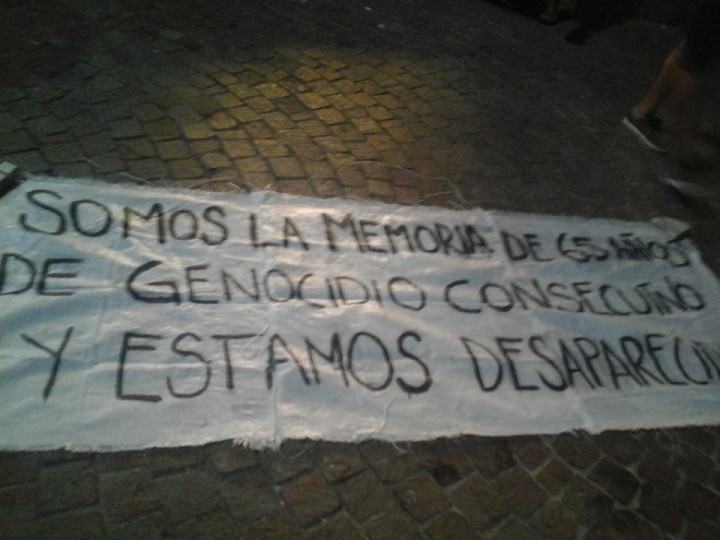 SOMOS LA MEMORIA DE 65 AÑOS
DE GENOCIDIO CONSECUTIVO
Y ESTAMOS DESAPARECI